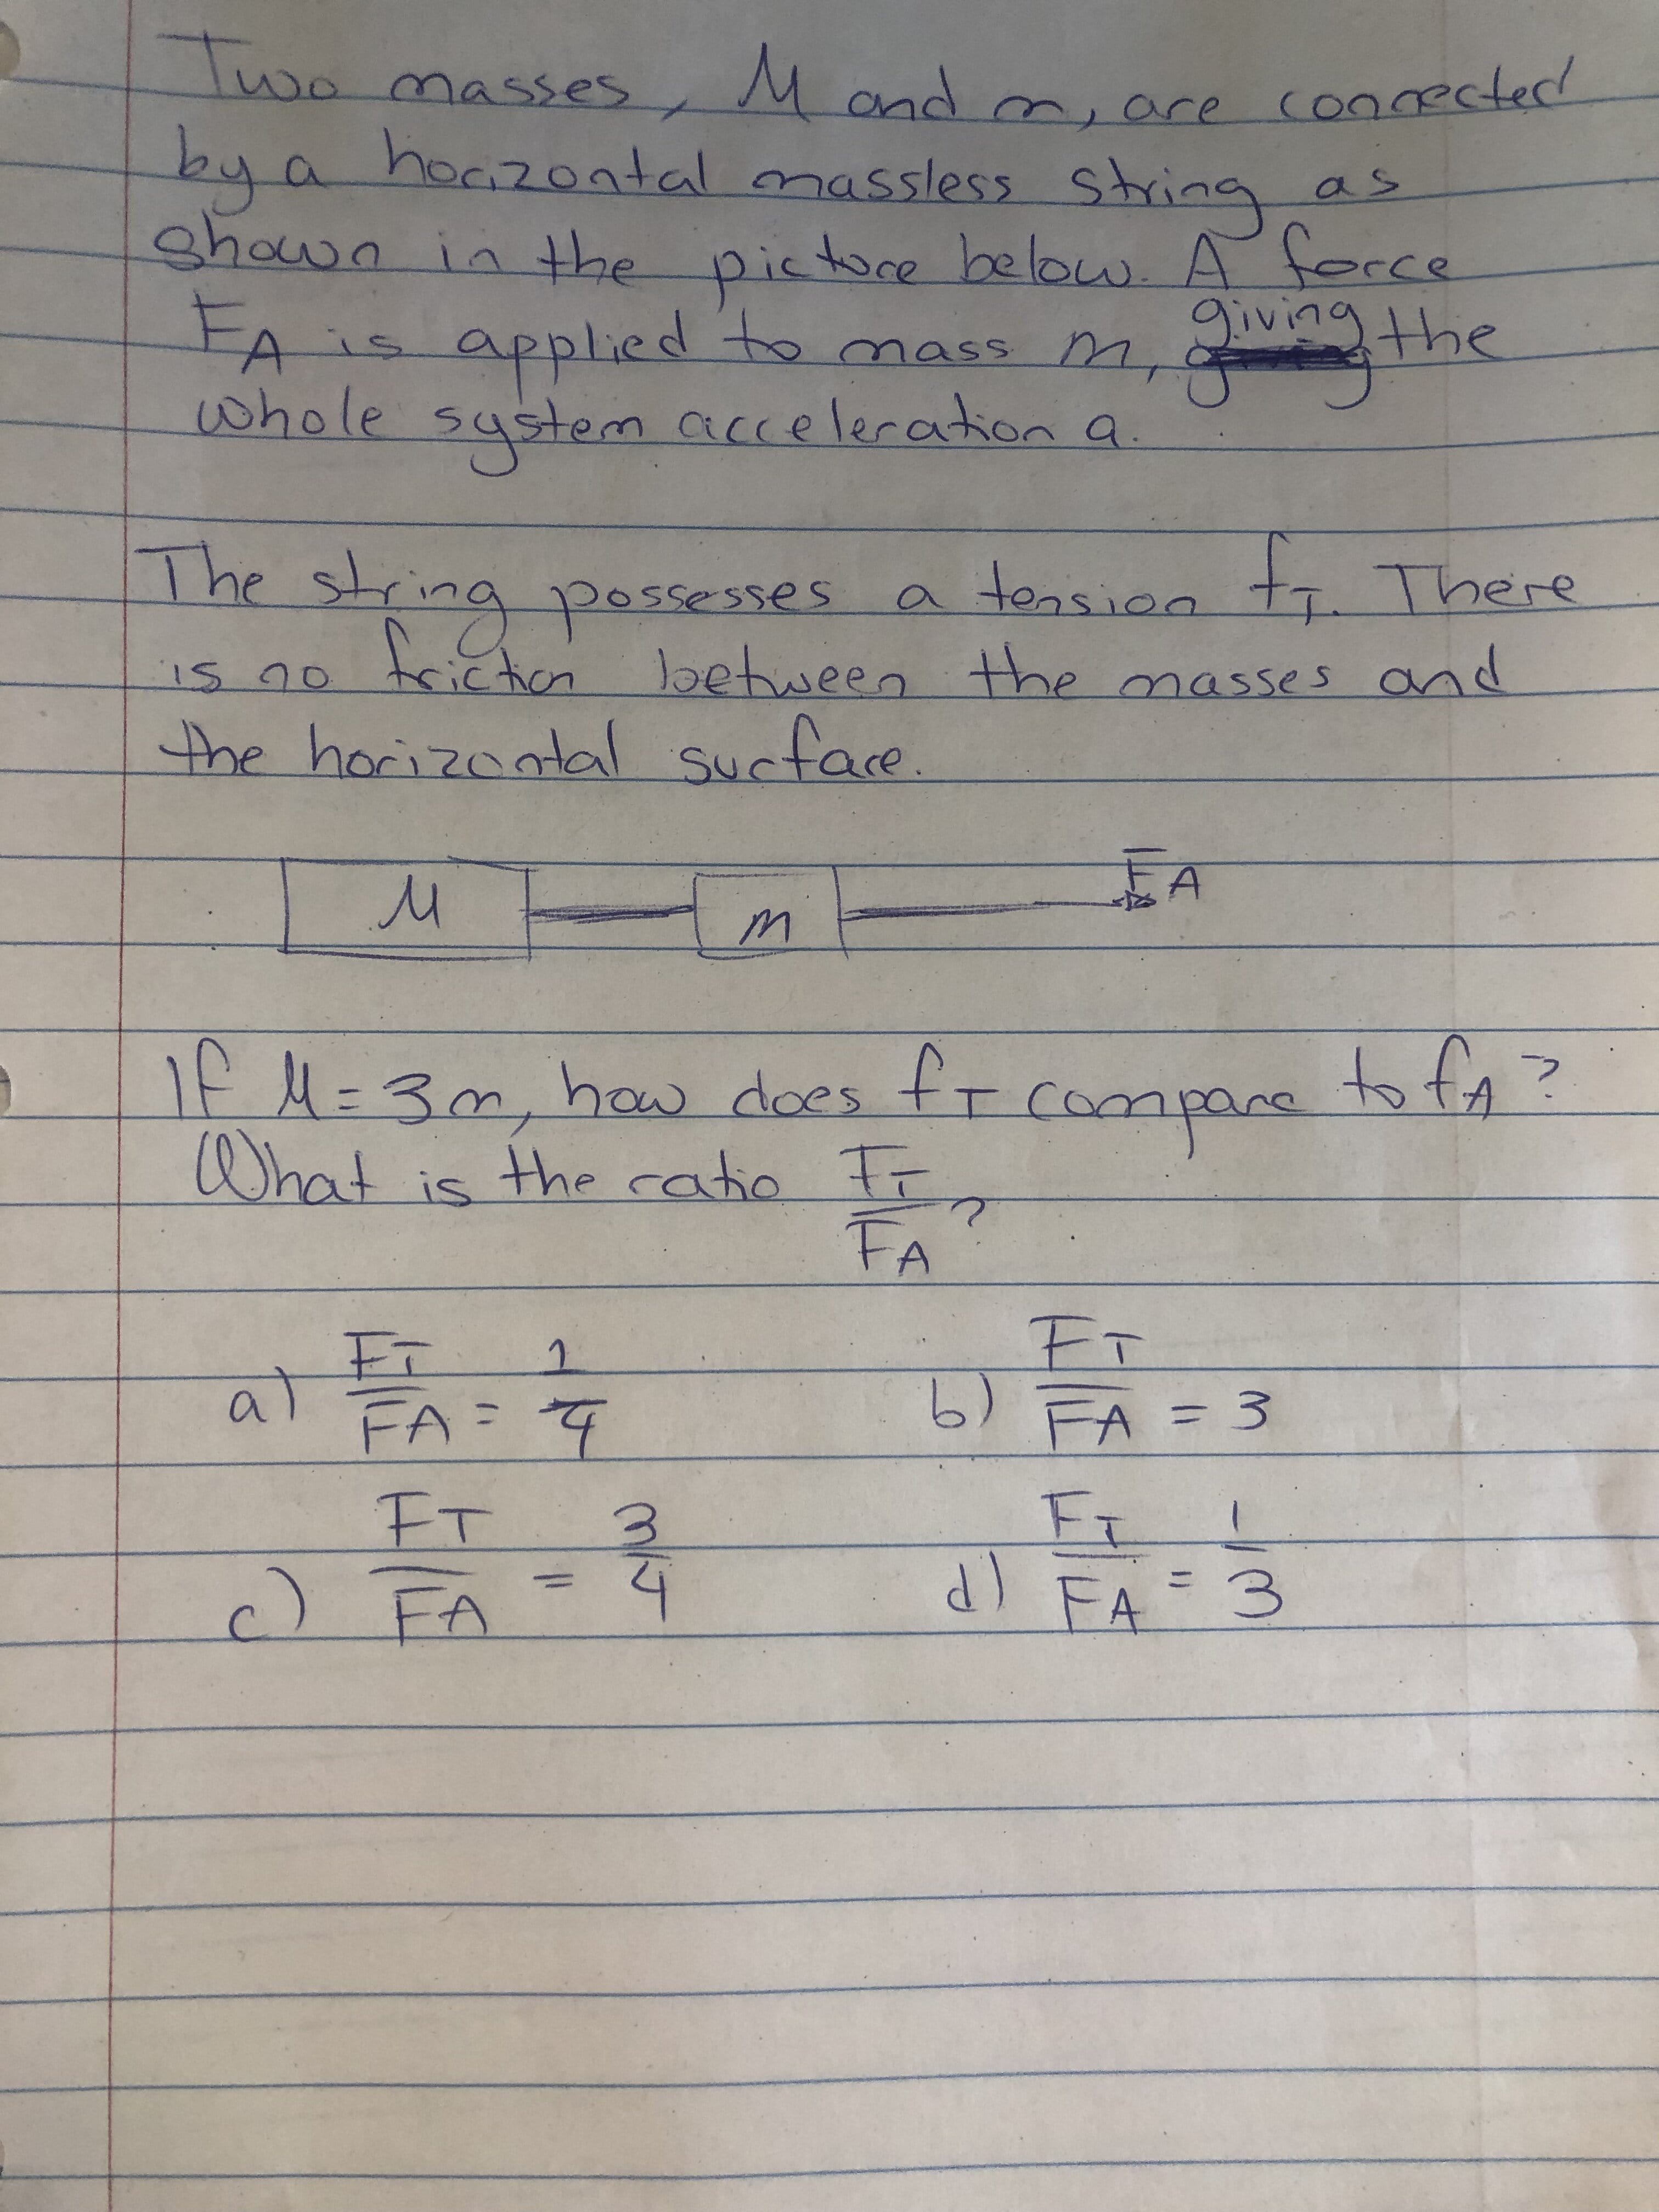 Two masses, M and m, are connected
by a horizontal massless string as
shown in the picture below. A force
FA is applied to mass m, giving the
whole system acceleration a.
The string possesses a tension fT. There
is no friction between the masses and
the horizontal surface.
M m FA
If M = 3m, how does fT compare to fA?
What is the ratio FT/FA?
a) FT/FA = 1/4 b) FT/FA = 3
c) FT/FA = 3/4 d) FT/FA = 1/3